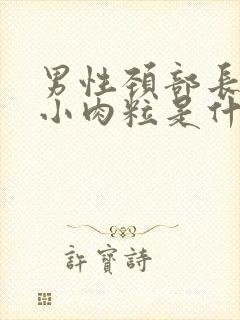 男性頚部長
小肉粒是什
許寶詩